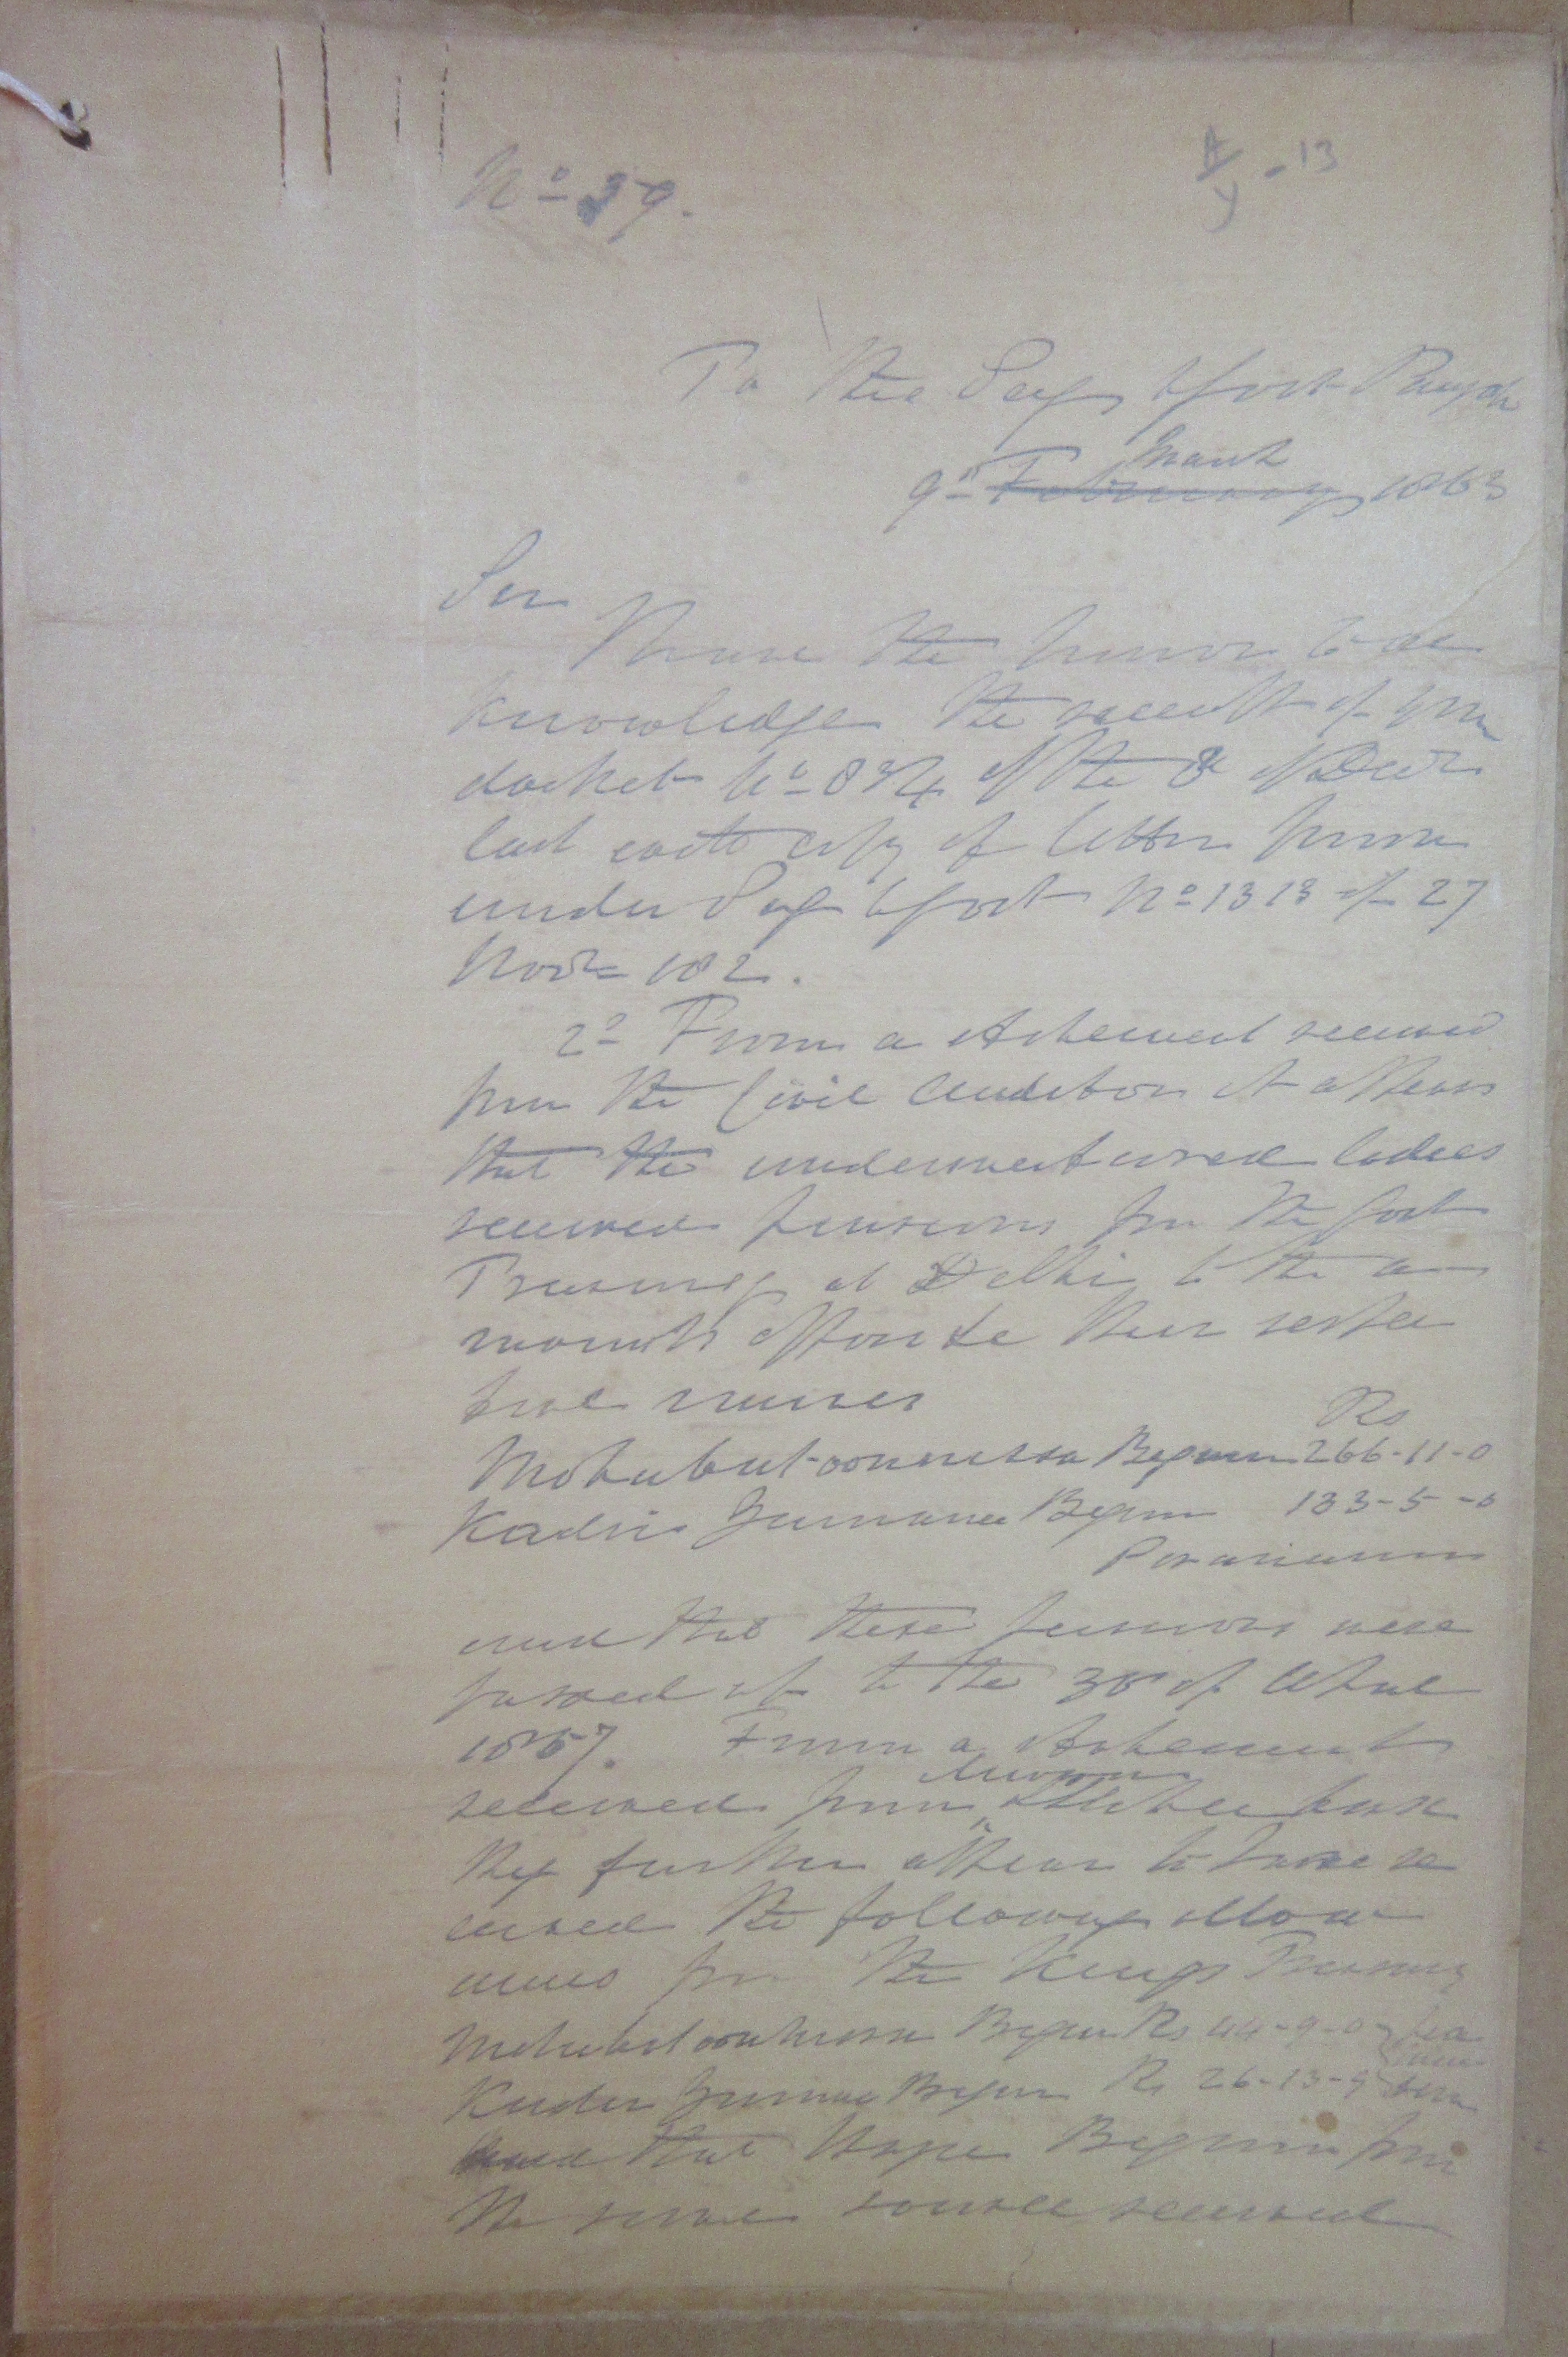 No 39.
13
To The Secy to Govt Punjab
March
9th February 1863
Sir
I have the honor to ac
knowledge the receipt of your
docket No 834 of the 8 of Decr
last with copy of letter from
under Secy to Govt No 1313 of 27
Novr 182.
2d From a statement received
from the Civil Auditor it appears
that the undermentioned ladies
received pensions from the Govt
Treasury at Delhi to the a
mounts opposite their respec
tive names
Rs
Mohubut-oonnissa Begum 266-11-0
Kadir Zumanee Begum 133-5-0
Per annum
and that these pensions were
passed up to the 30 of April
1857. From a statement
received from
they further appear to have re
ceived the following allow
ances from the Kings Treasury
Mohubutoonnissa Begum Rs 44-9-0
Kuder Zumanee Begum Rs 26-13-9
and that Begum from
the same source received